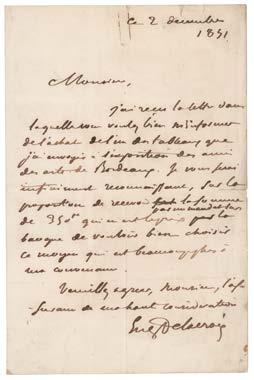 ce 2 décembre
1851
Monsieur,
j'ai reçu la lettre dans
laquelle vous voulez bien m'informer
de l'achat de l'un des tableaux que
j'ai envoyés à l'exposition des amis
des arts de Bordeaux. Je vous serai
infiniment reconnaissant, sur la
proposition de recevoir la somme
par un mandat sur
de 350 fr qui
banque de vouloir bien choisir
ce moyen qui est beaucoup plus à
ma convenance.
Veuillez agréer, Monsieur, l'as
surance de ma haute considération
Eug Delacroix